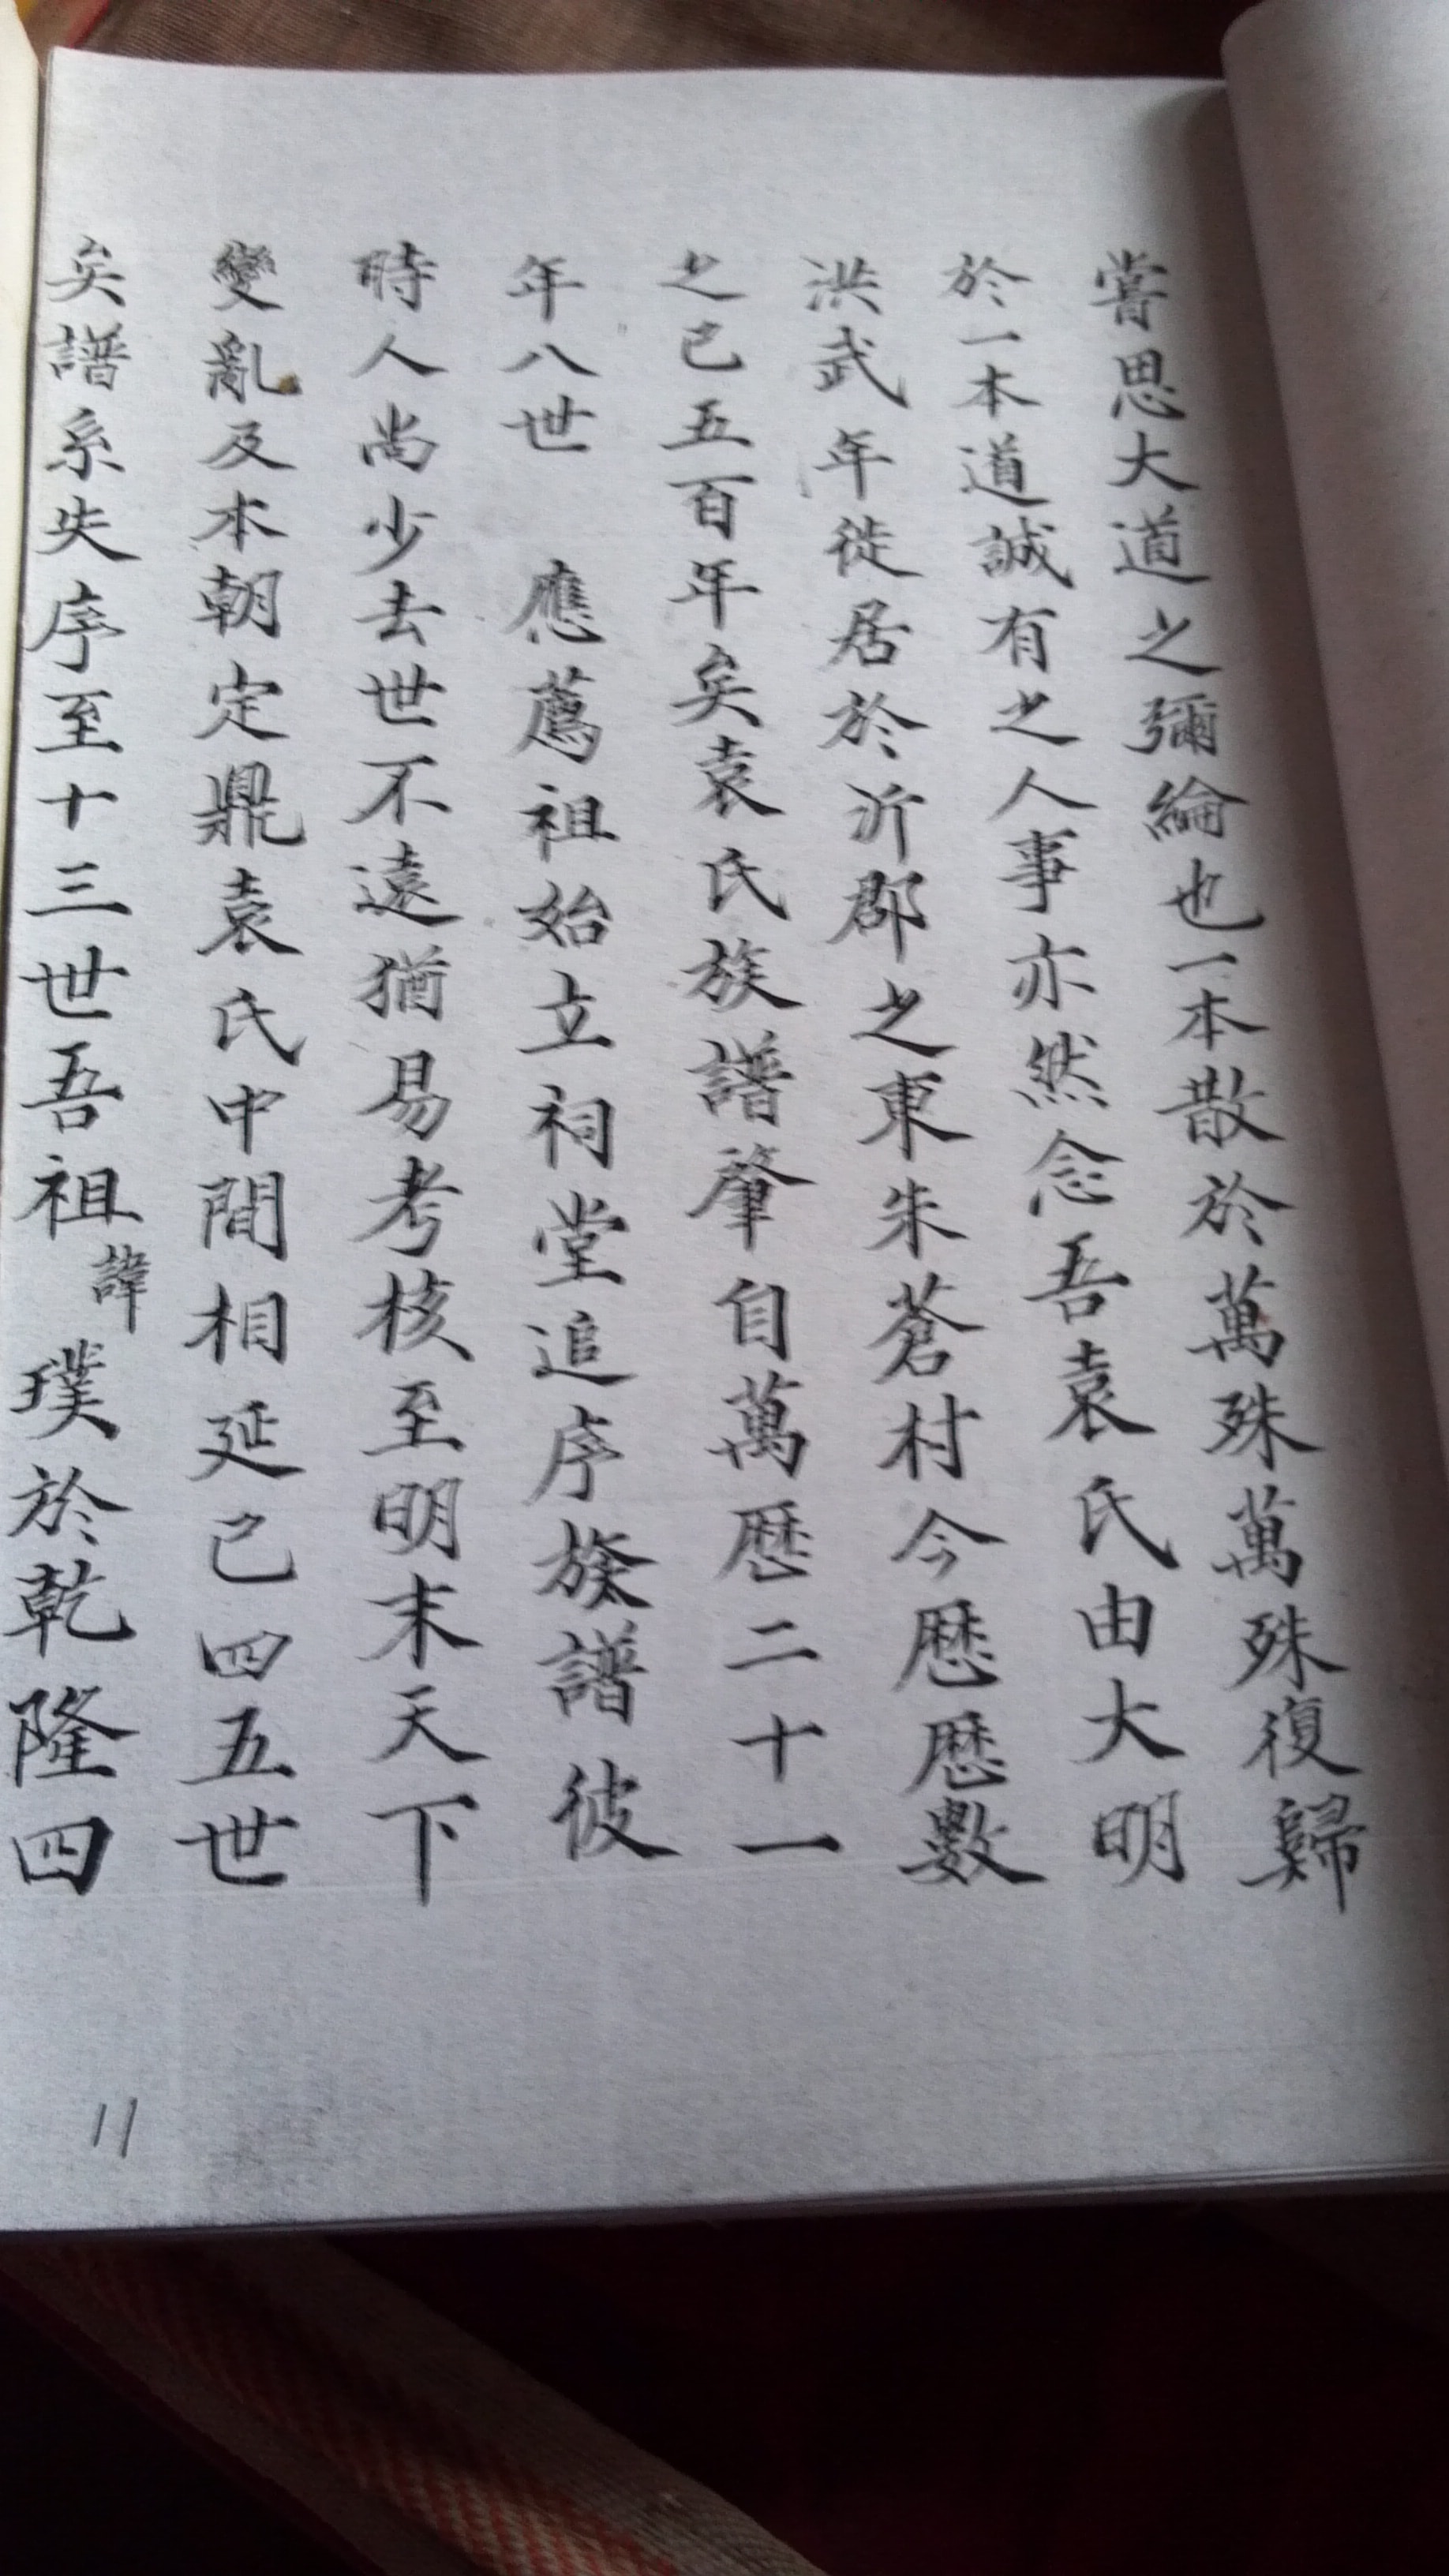 嘗思大道之彌綸也一本散於萬殊萬殊復歸
於一本道誠有之人事亦然念吾袁氏由大明
洪武年徙居於沂郡之東朱蒼村今歷歷數
之已五百年矣袁氏族譜肇自萬歷二十一
年八世 應薦祖始立祠堂追序族譜彼
時人尚少去世不遠猶易考核至明末天下
變亂及本朝定鼎袁氏中間相延已四五世
矣譜系失序至十三世吾祖諱璞於乾隆四
11